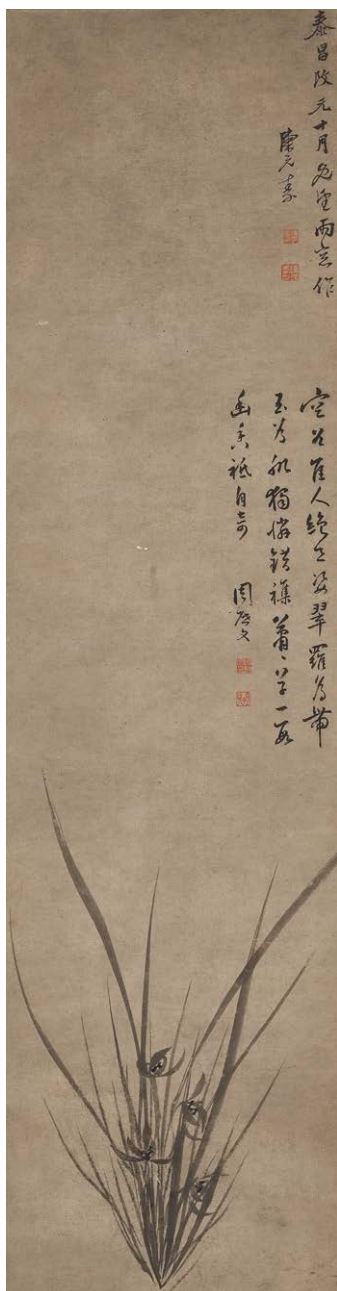 泰昌改元十月既望雨窗作
陳元素
空谷佳人絕世姿翠羅為帶
玉為肌獨憐錯襍蕭〻草一段
幽香祗自奇 周